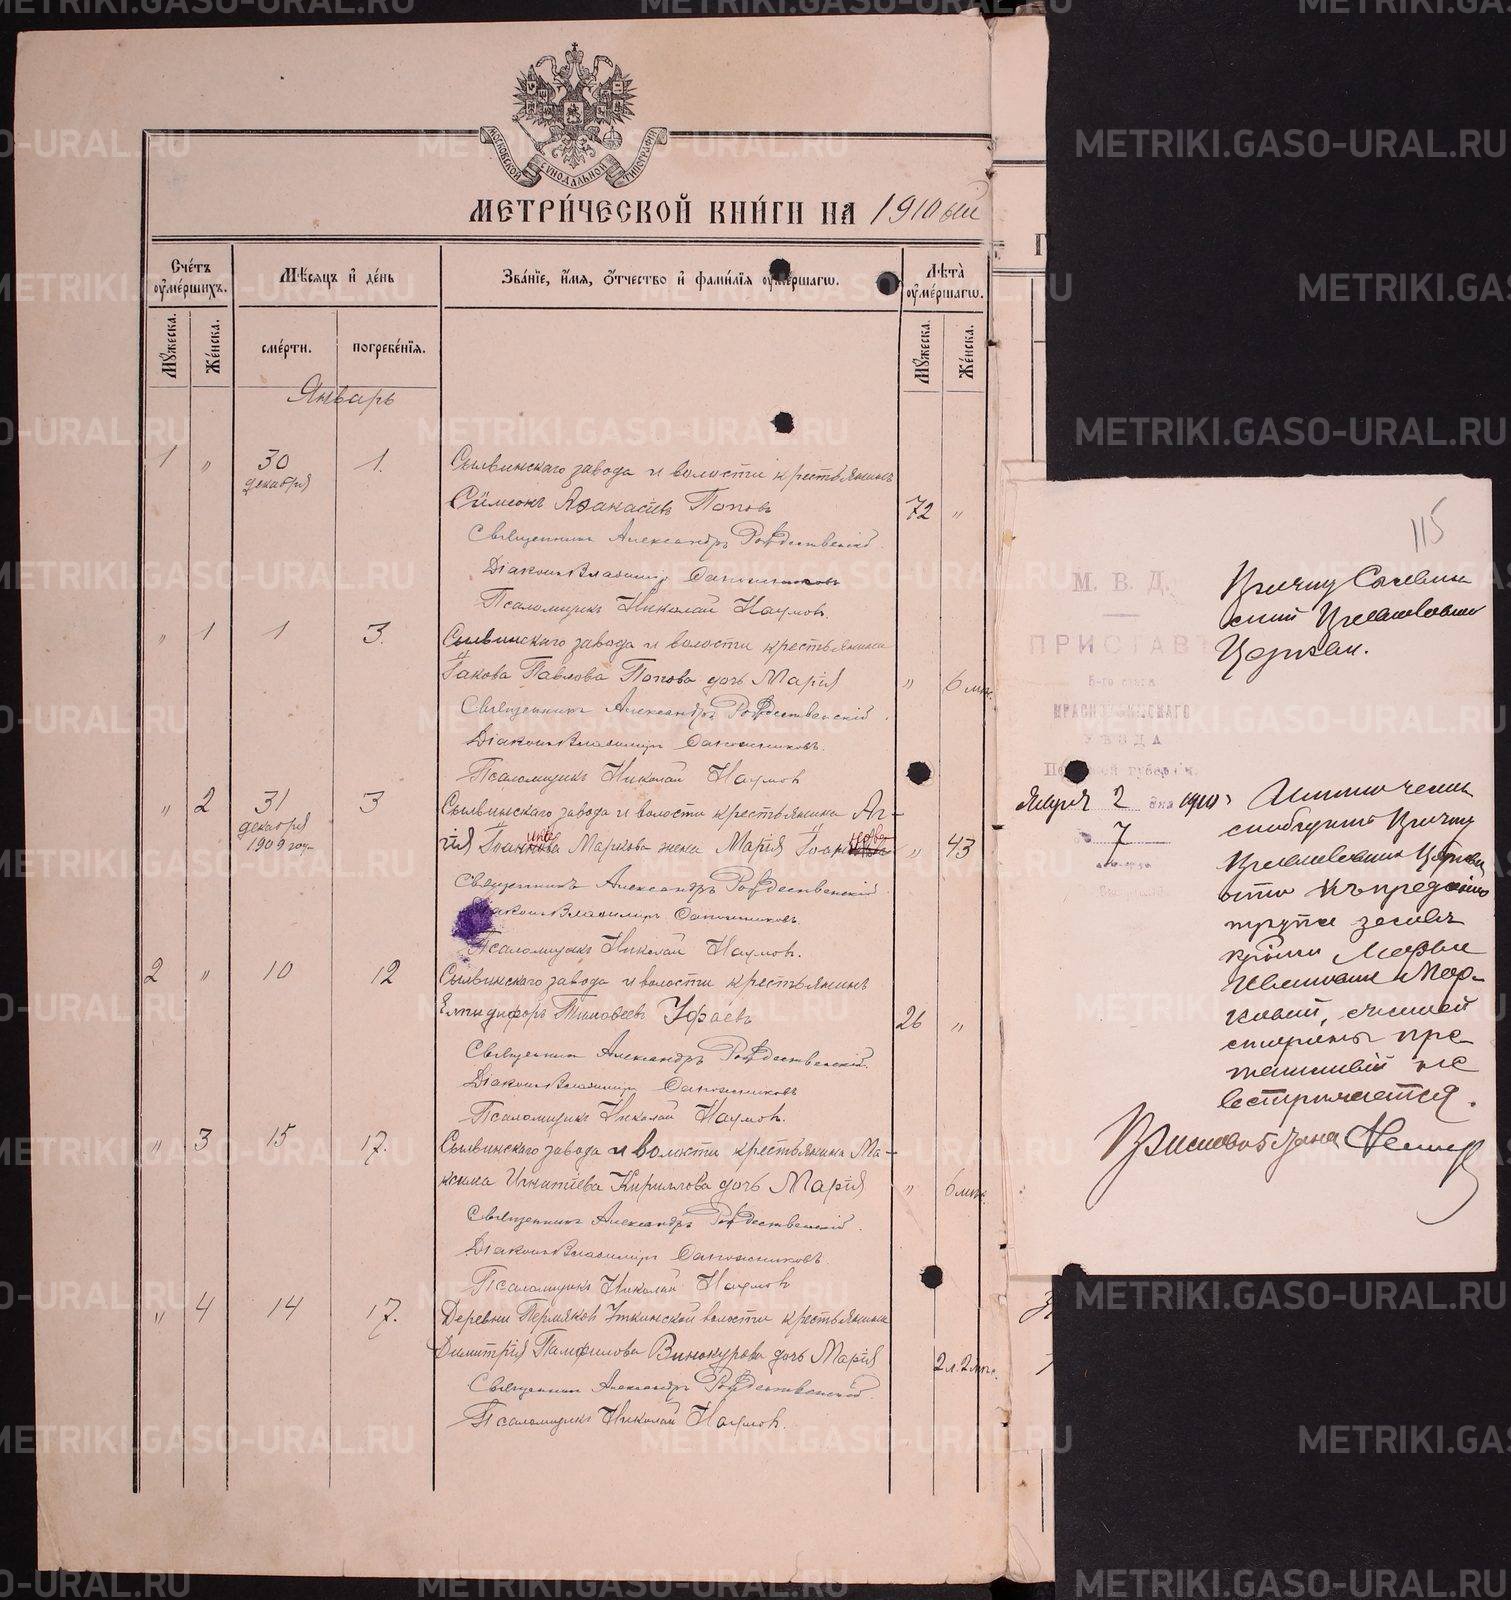 МОСКОВСКОЙ СѴНОДАЛЬНОЙ ТИПОГРАФІИ
МЕТРИ́ЧЕСКОЙ КНИ́ГИ НА 1910 ый
Сче́тъ ᲂу҆ме́ршихъ.
Мѣ́сяцъ и҆ де́нь
Зва́нїе, и҆́мѧ, ѻ҆́тчество и҆ фами́лїѧ ᲂу҆ме́ршагѡ.
Лѣта̀ ᲂу҆ме́ршагѡ.
Мꙋ́жеска.
Же́нска.
сме́рти.
погребе́нїѧ.
Мꙋ́жеска.
Же́нска.
Январь
1 " 30 декабря 1. Сылвинскаго завода и волости крестьянинъ
Сѵмеонъ Аѳанасіевъ Поповъ 72 "
Священникъ Александръ Рождественскій.
Діаконъ Владимиръ Сапожниковъ
Псаломщикъ Николай Наумовъ.
" 1 1 3. Сылвинскаго завода и волости крестьянина
Іакова Павлова Попова дочь Марія " 6 мѣс.
Священникъ Александръ Рождественскій.
Діаконъ Владимиръ Сапожниковъ.
Псаломщикъ Николай Наумовъ
" 2 31 декабря 1909 года 3 Сылвинскаго завода и волости крестьянина
Маркова жена Марія " 43
Священникъ Александръ Рождественскій.
Діаконъ Владимиръ Сапожниковъ.
Псаломщикъ Николай Наумовъ.
2 " 10 12 Сылвинскаго завода и волости крестьянинъ
Елпидифоръ Тимовеевъ Уфаевъ 26 "
Священникъ Александръ Рождественскій.
Діаконъ Владимиръ Сапожниковъ
Псаломщикъ Николай Наумовъ.
" 3 15 17. Сылвинскаго завода и волости крестьянина Ма-
ксима Игнатіева Кириллова дочь Марія " 6 мѣс.
Священникъ Александръ Рождественскій.
Діаконъ Владимиръ Сапожниковъ.
Псаломщикъ Николай Наумовъ
" 4 14 17. Деревни Пермяковъ Уткинской волости крестьянина
Димитрія Памфилова Винокурова дочь Марія 2 л. 2 мѣс.
Священникъ Александръ Рождественскій.
Псаломщикъ Николай Наумовъ.
115
М. В. Д.
ПРИСТАВЪ
5-го стана
КРАСНОУФИМСКАГО
УѢЗДА
Пермской губерніи.
Января 2 дня 1910 г.
7
Причту Сылвин
ской
Церкви.
сообщить Причту
Церкви
что къ преданію
трупа землѣ
Маріи
Мар-
ковой, съ моей
стороны пре-
пятствій не
встрѣчается.
METRIKI.GASO-URAL.RU